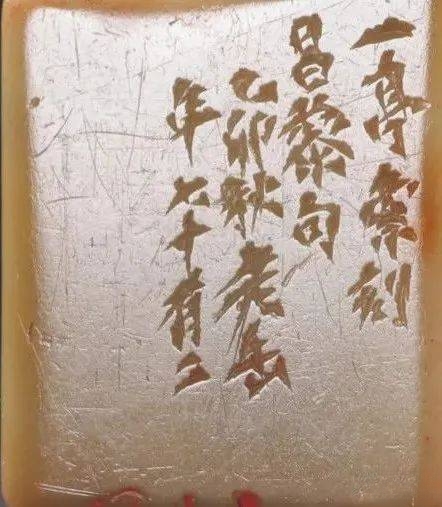 一亭索刻
昌黎句
乙卯秋老缶
年七十有二